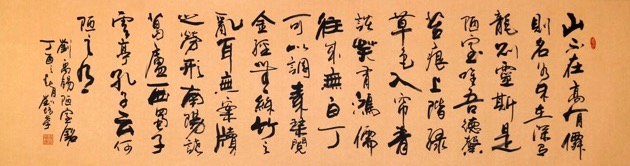 山不在高有僊
則名水不在深有
龍則靈斯是
陋室唯吾德馨
苔痕上階綠
草色入帘青
談笑有鴻儒
往來無白丁
可以調素琴閱
金經無絲竹之
亂耳無案牘
之勞形南陽諸
葛廬西蜀子
雲亭孔子云何
陋之有
劉禹錫陋室銘
丁酉